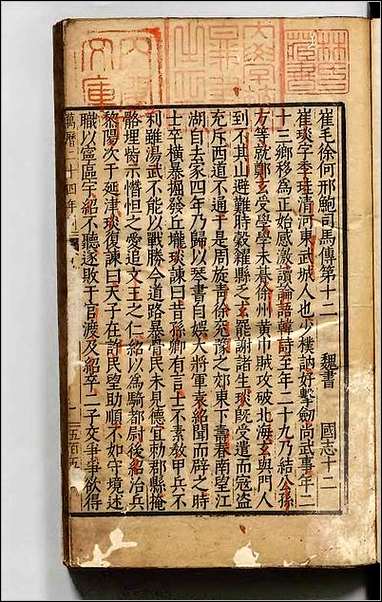 崔毛徐何邢鮑司馬傳第十二　魏書　國志十二
崔琰字季珪清河東武城人也少樸訥好擊劍尚武事年二
十三鄉移為正始感激讀論語韓詩至年二十九乃結公孫
方等就鄭玄受學學未朞徐州黃巾賊攻破北海玄與門人
到不其山避難時穀糴縣乏玄罷謝諸生琰既受遣而寇盜
充斥西道不通于是周旋青徐兗豫之郊東下壽春南望江
湖自去家四年乃歸以琴書自娛大將軍袁紹聞而辟之時
士卒橫暴掘發丘壠琰諫曰昔孫卿有言士不素教甲兵不
利雖湯武不能以戰勝今道路暴骨民未見德宜勑郡縣掩
骼埋胔示憯怛之愛追文王之仁紹以為騎都尉後紹治兵
黎陽次于延津琰復諫曰天子在許民望助順不如守境述
職以寧區宇紹不聽遂敗于官渡及紹卒二子交爭爭欲得
萬曆二十四年刊
五百五